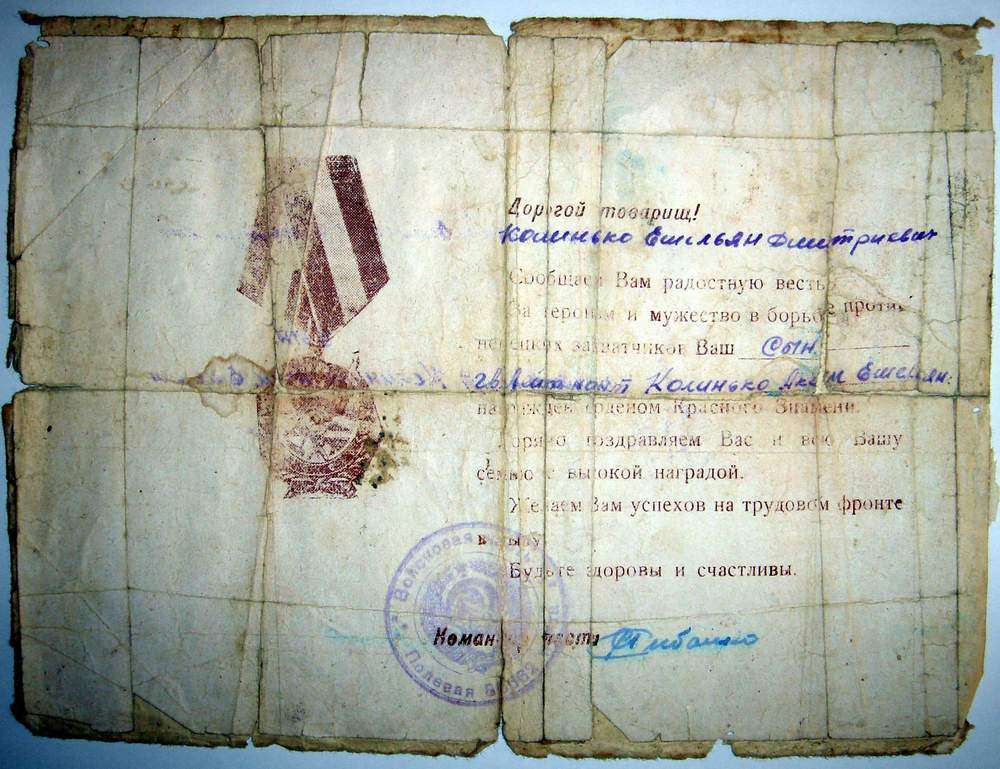 Дорогой товарищ!
Колинько Емельян Дмитриевич
Сообщаем Вам радостную весть
За героизм и мужество в борьбе против
немецких захватчиков Ваш сын
гв. Колинько Аким Емельян.
награжден орденом Красного Знамени.
Горячо поздравляем Вас и всю Вашу
семью с высокой наградой.
Желаем Вам успехов на трудовом фронте
в тылу
Будьте здоровы и счастливы.
Командир части
Войсковая
Полевая